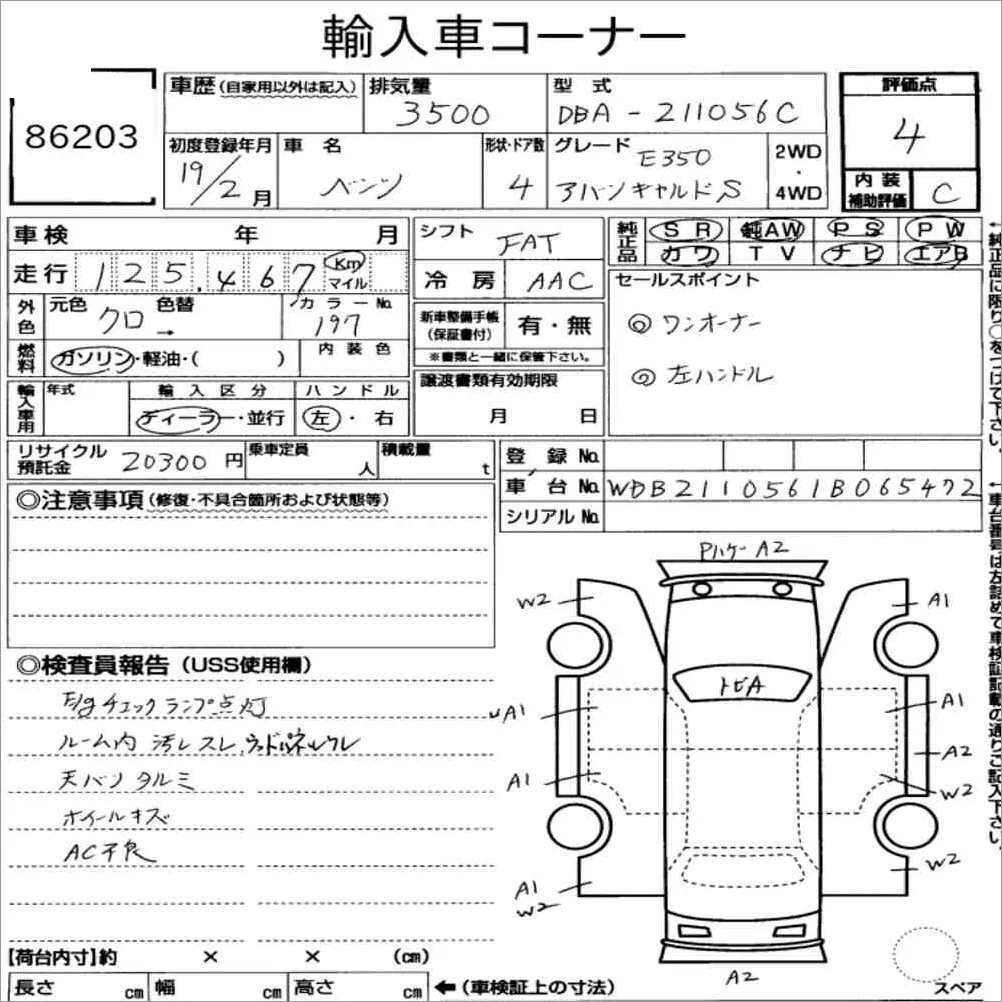 輸入車コーナー
86203
車歴(自家用以外は記入)
排気量
3500
型式
DBA-211056C
評価点
4
初度登録年月
19/2月
車名
ベンツ
形状・ドア数
4
グレード
E350
アバンギャルドS
2WD
・
4WD
内装
補助評価
C
車検 年 月
走行 125,467 Km
マイル
シフト
FAT
冷房 AAC
純正品
SR 純AW PS PW
カワ TV ナビ エアB
外色
元色 クロ 色替 →
カラーNo.
197
燃料
ガソリン・軽油・( )
内装色
新車整備手帳
(保証書付)
有・無
※書類と一緒に保管下さい。
セールスポイント
◎ワンオーナー
◎左ハンドル
輸入車用
年式
輸入区分
ディーラー・並行
ハンドル
左・右
譲渡書類有効期限
月 日
リサイクル
預託金
20300円
乗車定員
人
積載量
t
登録No.
車台No. WDB2110561B065472
シリアルNo.
←純正品に限り○をつけて下さい。
←車台番号は左詰めで車検証記載の通りご記入下さい。
◎注意事項(修復・不具合箇所および状態等)
◎検査員報告(USS使用欄)
E/gチェックランプ点灯
ルーム内 汚レスレ,ウッドパネルワレ
天バリタルミ
ホイールキズ
AC不良
Pハゲ-A2
W2
A1
トビA
A1
A1
A2
A1
W2
W2
A1
W2
A2
スペア
【荷台内寸】約 × × (cm)
長さ cm 幅 cm 高さ cm ←(車検証上の寸法)